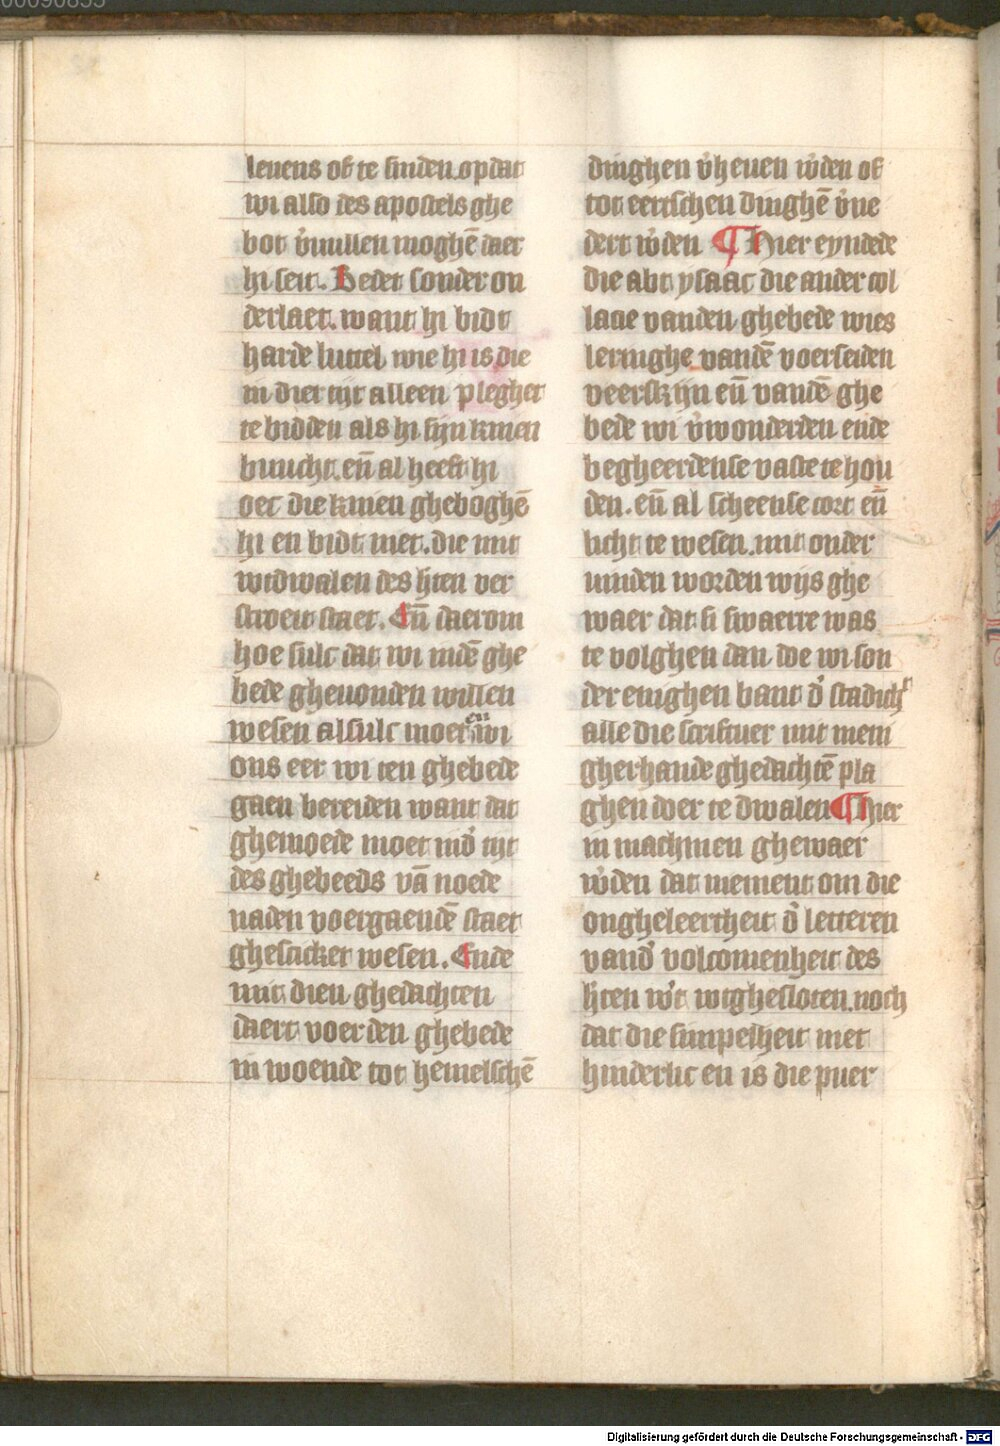 00090855
leuens of te sniden. op dat
wi also des apostels ghe
bot v̉uullen moghē daer
hi seit. Bedet sonder on
derlaet. want hi bidt
harde luttel wie hi is die
in dier tijt alleen pleghet
te bidden als hi sijn knien
buucht. en̄ al heeft hi
oec die knien gheboghē
hi en bidt niet. die mit
wtdwalen des h̉ten ver
stroeit staet. En̄ daerom
hoe sulc dat wi indē ghe
bede gheuonden willen
wesen alsulc moetē wi
ons eer wi ten ghebede
gaen bereiden want dat
ghemoede moet ind̉ tijt
des ghebeeds vā noede
naden voergaendē staet
ghesticket wesen. Ende
mit dien ghedachten
daert voer den ghebede
in woende tot hemelschē
dinghen v̉heuen w̉den of
tot eertschen dinghē v̉ne
dert w̉den ¶ Hier eyndede
die abt ysaac die ander col
lacie vanden ghebede wies
leringhe vandē voerseiden
veerskijn en̄ vandē ghe
bede wi v̉wonderden ende
begheerdense vaste te hou
den. en̄ al scheense cort en̄
licht te wesen. mit onder
uinden worden wijs ghe
waer dat si swaerre was
te volghen dan doe wi son
der enighen bant d̉ stadich
alle die scriftuer mit meni
gherhande ghedachtē pla
ghen doer te dwalen ¶ Hier
in machmen ghewaer
w̉den dat niement om die
ongheleertheit d̉ letteren
vand̉ volcomenheit des
h̉ten w̉t wtghesloten. noch
dat die simpelheit niet
hinderlic en is die puer
Digitalisierung gefördert durch die Deutsche Forschungsgemeinschaft - DFG